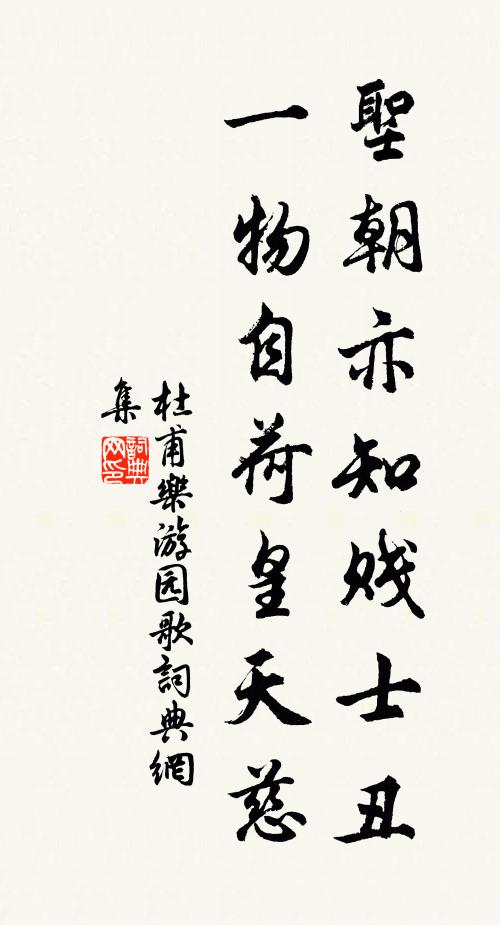 聖朝亦知贱士丑
一物自荷皇天慈
杜甫樂游园歌詞典網
集
詞典網印